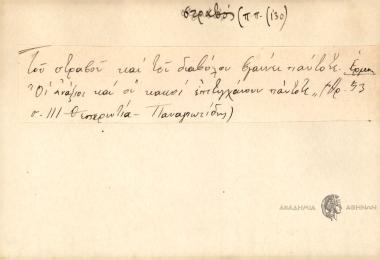 στραβός (π.π. (130)
Τοῦ στραβοῦ καί τοῦ διαβόλου βγαίνει πάντοτε. Ἑρμ.
Οἱ ἀνάξιοι καί οἱ κακοί ἐπιτυγχάνουν πάντοτε, (Ἀρ. 53
σ. III Θεσπρωτία - Παναγιωτίδης)
ΑΚΑΔΗΜΙΑ ΑΘΗΝΩΝ